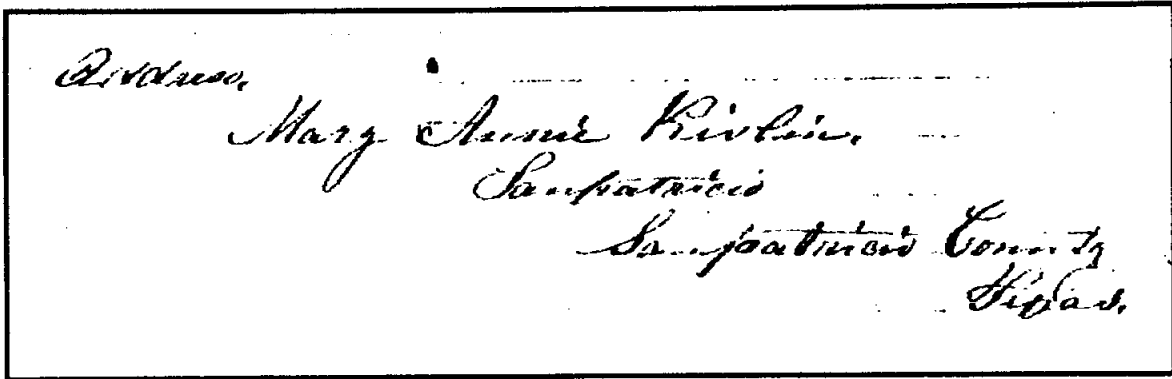 Address.
Mary Annie Rivlin.
Sanpatricio
Sanpatricio County
Texas.